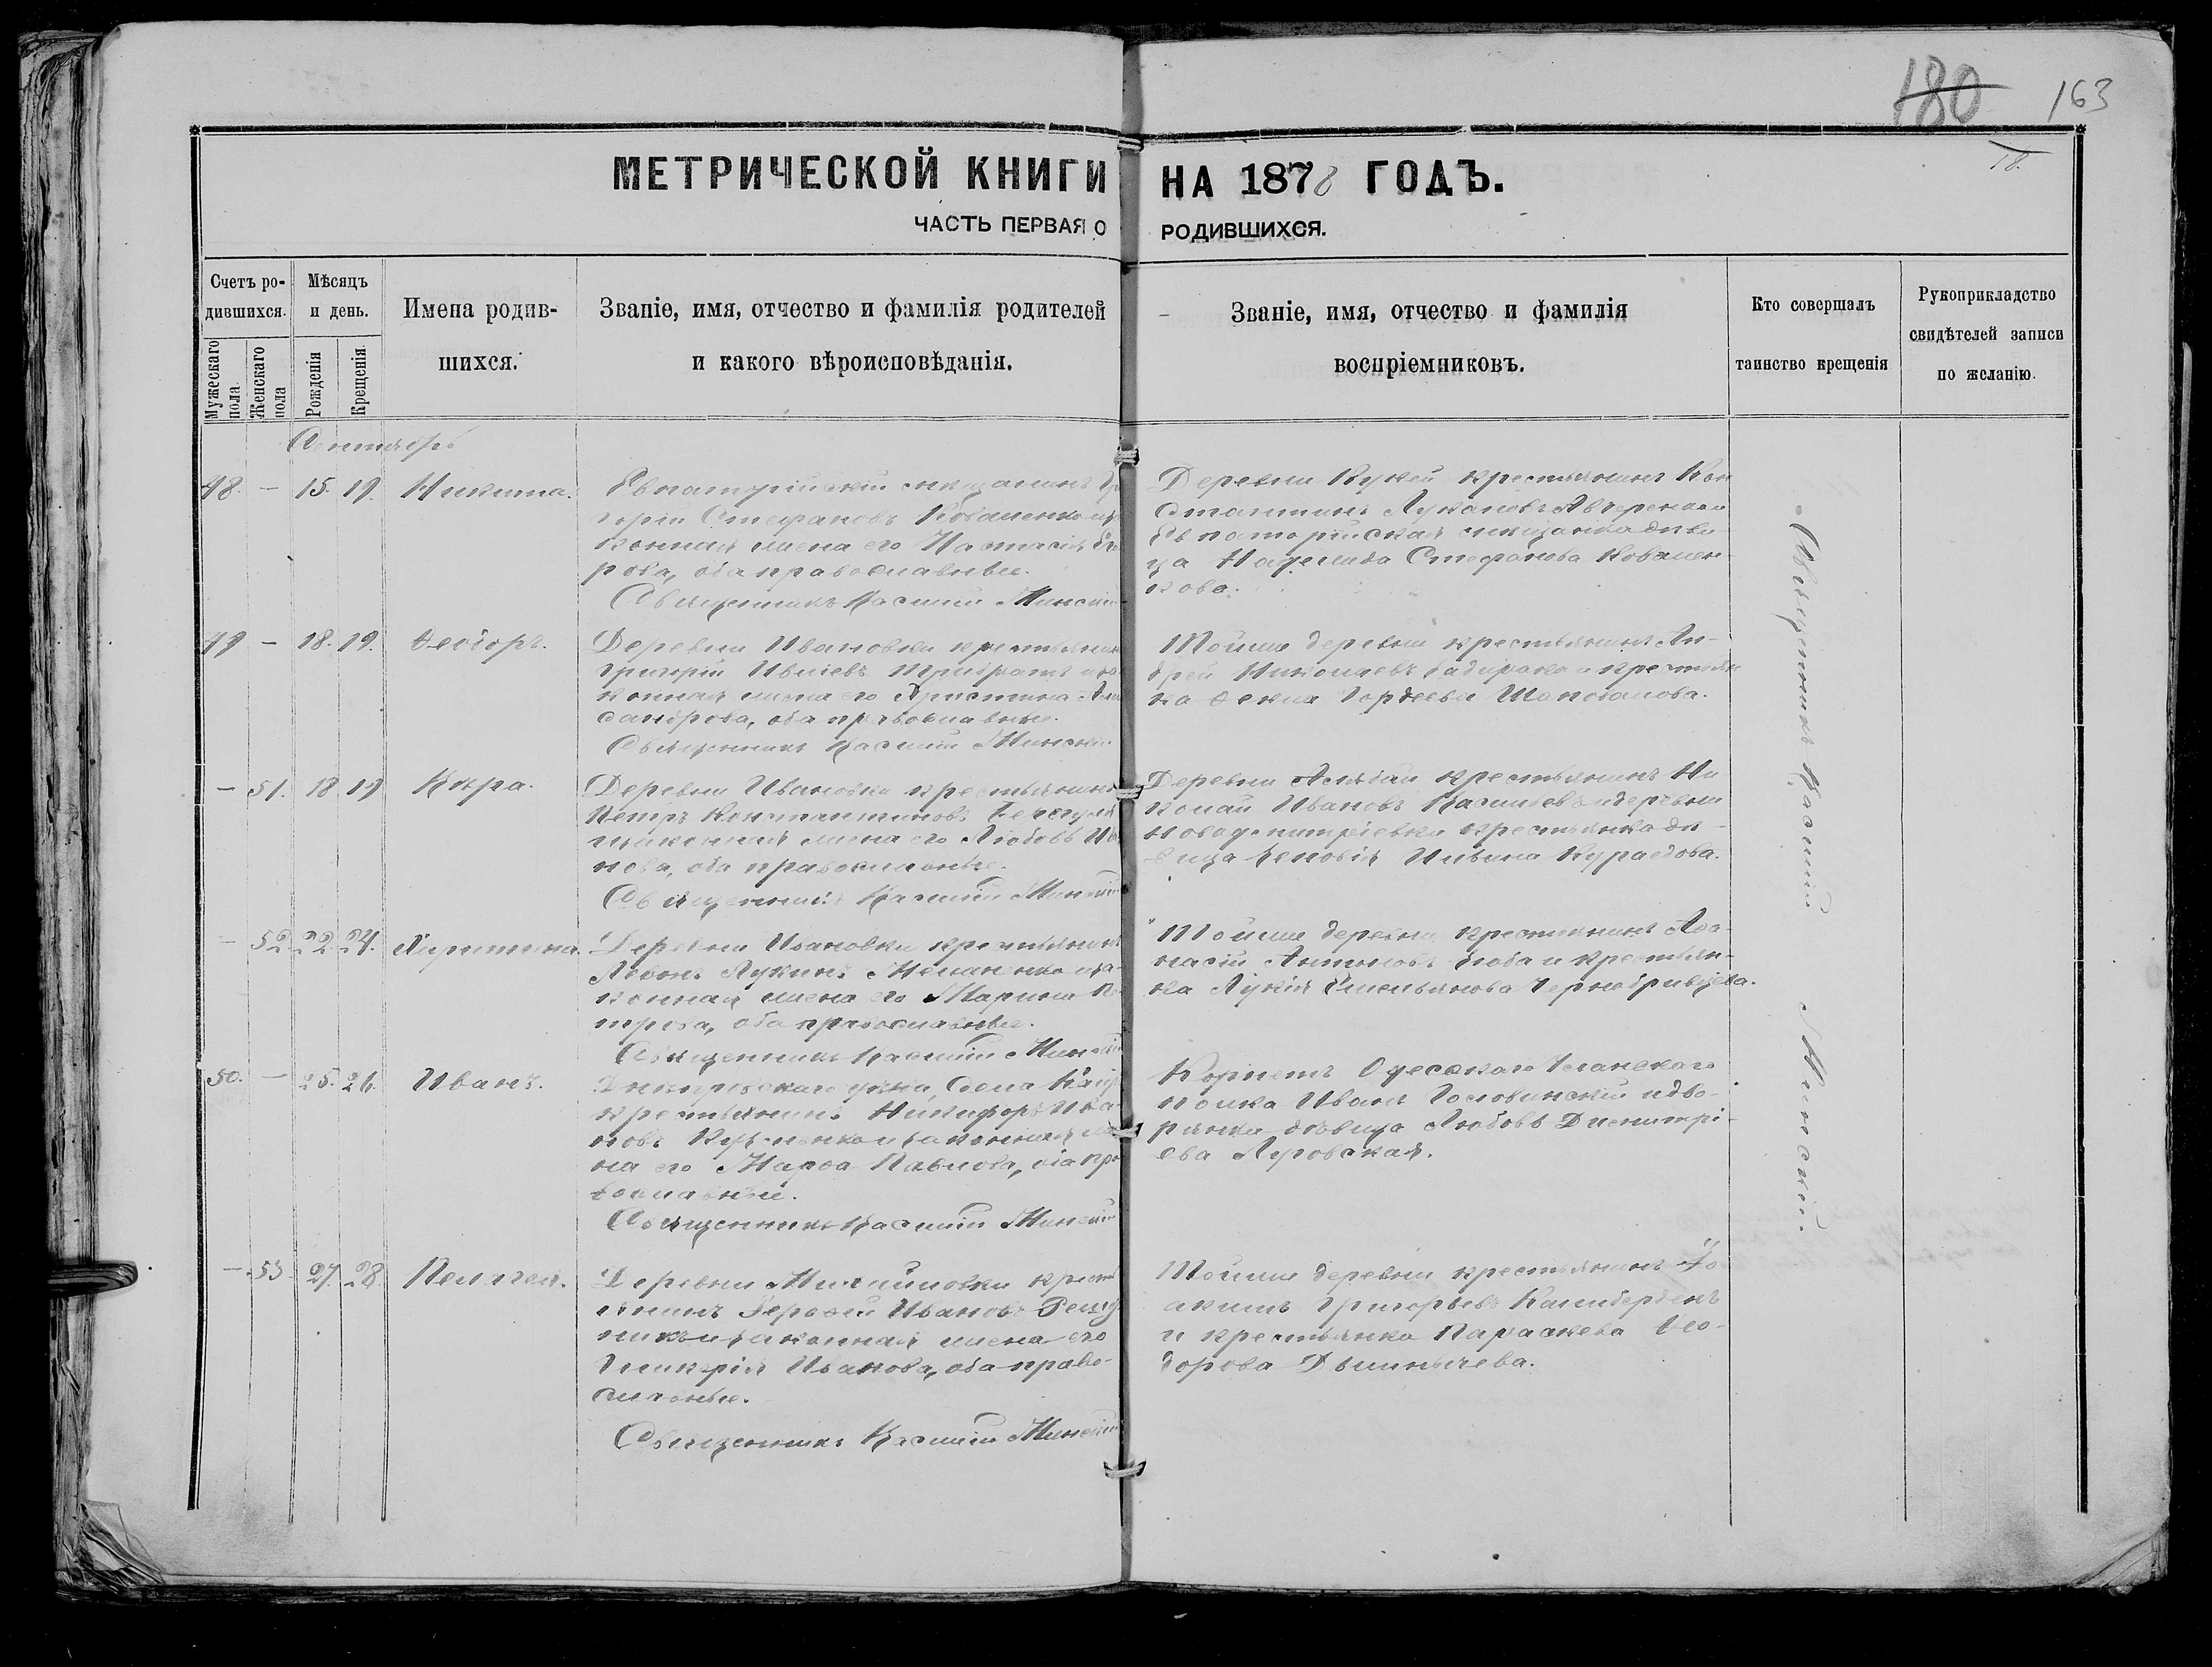 180 163
18.
МЕТРИЧЕСКОЙ КНИГИ НА 1878 ГОДЪ.
ЧАСТЬ ПЕРВАЯ О РОДИВШИХСЯ.
Счетъ ро-
дившихся.
Мужескаго пола.
Женскаго пола
Мѣсяцъ
и день.
Рожденія
Крещенія.
Имена родив-
шихся.
Званіе, имя, отчество и фамилія родителей
и какого вѣроисповѣданія.
Званіе, имя, отчество и фамилія
воспріемниковъ.
Кто совершалъ
таинство крещенія
Рукоприкладство
свидѣтелей записи
по желанію.
Сентябрь
48. — 15. 19. Никита.
Евпаторійскій мѣщанинъ Гри
горій Стефановъ
конная жена его Настасія Его
рова, оба православные.
Священникъ Василій Минскій
Деревни Кукей крестьянинъ Кон
стантинъ
Евпаторійская мѣщанка дѣви
ца Надежда Стефанова Ковален
кова.
49 — 18. 19. Ѳеодоръ.
Деревни Ивановки крестьянинъ
Григорій
конная жена его Христина Алек
сандрова, оба православные.
Священникъ Василій Минскій
Тойже деревни крестьянинъ Ан-
дрей Николаевъ и крестьян
ка Ѳекла Гордѣева Шаповалова.
— 51. 18 19 Кира.
Деревни Ивановки крестьянинъ
Петръ Константиновъ
и законная жена его Любовь Ива
нова, оба православные.
Священникъ Василій Минскій
Деревни крестьянинъ Ни
колай Ивановъ Васильевъ и деревни
Новодмитріевки крестьянка дѣ-
вица Зеновія
— 52. 22. 24. Харитина.
Деревни Ивановки крестьянинъ
Леонъ Лукинъ и за-
конная жена его Марина Пе
трова, оба православные.
Священникъ Василій Минскій
Тойже деревни крестьянинъ Аѳа-
насій Антоновъ и крестьян-
ка Лукія Емельянова
50. — 25. 26. Иванъ.
Днѣпровскаго уѣзда, Села
крестьянинъ Никифоръ Ива
новъ и законная же
на его Марѳа Павлова, оба пра
вославные.
Священникъ Василій Минскій
Корнетъ Одесскаго Уланскаго
полка Иванъ и дво-
рянка дѣвица Любовь Дмитрі-
ева
— 53. 27. 28 Пелагея.
Деревни Михайловки кресть
янинъ Ивановъ
и законная жена его
Гликерія Иванова, оба право-
славные.
Священникъ Василій Минскій
Тойже деревни крестьянинъ Іо
акимъ Григорьевъ
и крестьянка Параскева Ѳео-
дорова
Священникъ Василій Минскій.